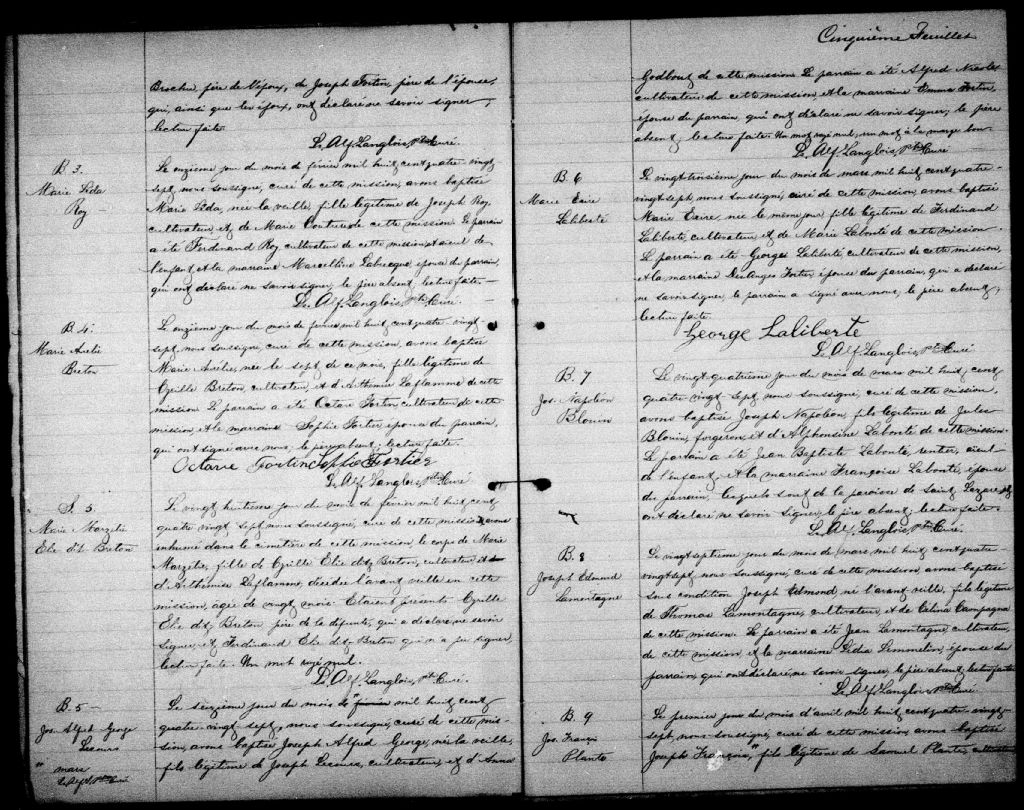 Brochu, père de l'époux, de Joseph Fortin, père de l'épouse,
qui, ainsi que les époux, ont déclaré ne savoir signer,
lecture faite.
L. Alf. Langlois, Ptre Curé.
B. 3.
Marie Léda
Roy
Le onzième jour du mois de février mil huit cent quatre-vingt
sept, nous soussigné, curé de cette mission, avons baptisé
Marie Léda, née la veille, fille légitime de Joseph Roy,
cultivateur, et de Marie Couture de cette mission. Le parrain
a été Ferdinand Roy cultivateur de cette mission et aieul de
l'enfant, et la marraine Marcelline Labrecque, épouse du parrain,
qui ont déclaré ne savoir signer, le père absent, lecture faite.
L. Alf. Langlois, Ptre Curé.
B. 4.
Marie Aurélie
Breton
Le onzième jour du mois de février mil huit cent quatre-vingt
sept, nous soussigné, curé de cette mission, avons baptisé
Marie Aurélie, née le sept de ce mois, fille légitime de
Cyrille Breton, cultivateur, et d'Arthémise Laflamme de cette
mission. Le parrain a été Octave Fortin, cultivateur de cette
mission, et la marraine Sophie Fortier, épouse du parrain,
qui ont signé avec nous, le père absent, lecture faite.
Octave Fortin Sophie Fortier
L. Alf. Langlois, Ptre Curé
S. 5.
Marie Marzélie
Elie dit Breton
Le vingt huitième jour du mois de février mil huit cent
quatre vingt sept, nous soussigné, curé de cette mission, avons
inhumé dans le cimetière de cette mission, le corps de Marie
Marzélie, fille de Cyrille Elie dit Breton, cultivateur et
d'Arthémise Laflamme, décédée l'avant veille en cette
mission, agée de vingt mois. Etaient présents Cyrille
Elie dit Breton père de la défunte, qui a déclaré ne savoir
signer, et Ferdinand Elie dit Breton qui n'a pu signer,
lecture faite. Un mot rayé nul.
L. Alf. Langlois, Ptre Curé.
B. 5
Jos. Alfred George
Lecours
" mars
L. Alf. L. Ptre Curé
Le seizième jour du mois de février " mil huit cent
quatre-vingt-sept, nous soussigné, curé de cette mis-
sion, avons baptisé Joseph Alfred George, né la veille,
fils légitime de Joseph Lecours, cultivateur, et d'Anna
Cinquième Feuillet
Godbout de cette mission. Le parrain a été Alfred
cultivateur de cette mission, et la marraine Emma Fortin,
épouse du parrain, qui ont déclaré ne savoir signer; le père
absent, lecture faite. Un mot rayé nul, un mot à la marge bon.
L. Alf. Langlois, Ptre Curé
B. 6
Marie Exire
Laliberté
Le vingt troisième jour du mois de mars mil huit cent quatre-
vingt sept, nous soussigné, curé de cette mission, avons baptisé
Marie Exire, née le même jour, fille légitime de Ferdinand
Laliberté, cultivateur, et de Marie Labonté de cette mission.
Le parrain a été Georges Laliberté cultivateur de cette mission,
et la marraine Desanges Fortier, épouse du parrain, qui a déclaré
ne savoir signer, le parrain a signé avec nous, le père absent,
lecture faite.
George Laliberté
L. Alf. Langlois, Ptre Curé
B. 7
Jos. Napoléon
Blouin
Le vingt-quatrième jour du mois de mars mil huit cent
quatre vingt-sept, nous soussigné, curé de cette mission,
avons baptisé Joseph Napoléon, fils légitime de Jules
Blouin, forgeron, et d'Alphonsine Labonté de cette mission.
Le parrain a été Jean Baptiste Labonté, rentier, aieul
de l'enfant, et la marraine Françoise Labonté, épouse
du parrain, lesquels sont de la paroisse de Saint Lazare et
ont déclaré ne savoir signer, le père absent, lecture faite.
L. Alf. Langlois, Ptre Curé
B. 8
Joseph Edmond
Lamontagne
Le vingt septième jour du mois de mars mil huit cent quatre-
vingt sept, nous soussigné, curé de cette mission avons baptisé
sous condition Joseph Edmond, né l'avant veille, fils légitime
de Thomas Lamontagne, cultivateur, et de Célina Campagna
de cette mission. Le parrain a été Jean Lamontagne, cultivateur,
de cette mission, et la marraine Léda Simoneau, épouse du
parrain, qui ont déclaré ne savoir signer, le père absent, lecture faite
L. Alf. Langlois, Ptre Curé
B. 9
Jos. François
Plante
Le premier jour du mois d'avril mil huit cent quatre-vingt-
sept, nous soussigné, curé de cette mission, avons baptisé
Joseph François, " fils légitime de Samuel Plante, cultivateur